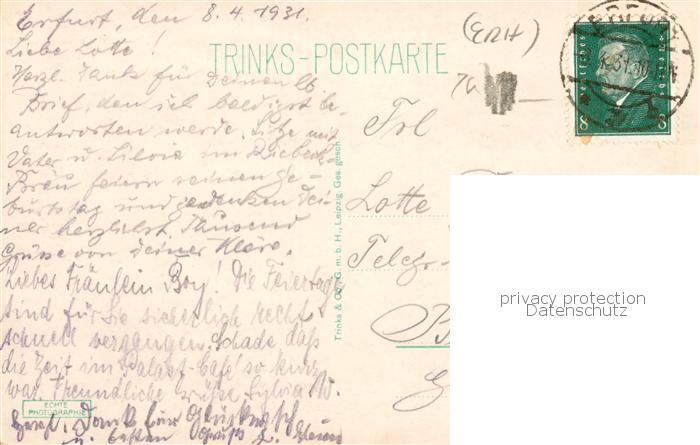 Erfurt, den 8.4.1931.
Liebe Lotte!
Herzl. Dank für Deinen lb.
Brief, den ich baldigst be-
antworten werde. Sitze mit
Vater u. Silvia im
Bräu feiern seinen Ge-
burtstag und gedenken Dei-
ner herzlichst. Tausend
Grüsse von Deiner Kläre.
Liebes Fräulein Boy! Die Feiertage
sind für Sie sicherlich recht
schnell vergangen. Schade daß
die Zeit im Palast-Café so kurz
war. Freundliche Grüße Sylvia
Herzl. Dank für
u. besten Gruß
ECHTE
PHOTOGRAPHIE
TRINKS-POSTKARTE
Trinks & Co., G. m. b. H., Leipzig. Ges. gesch.
(ERH)
Frl
Lotte
Telegr.-
ERFURT
8
8
privacy protection
Datenschutz